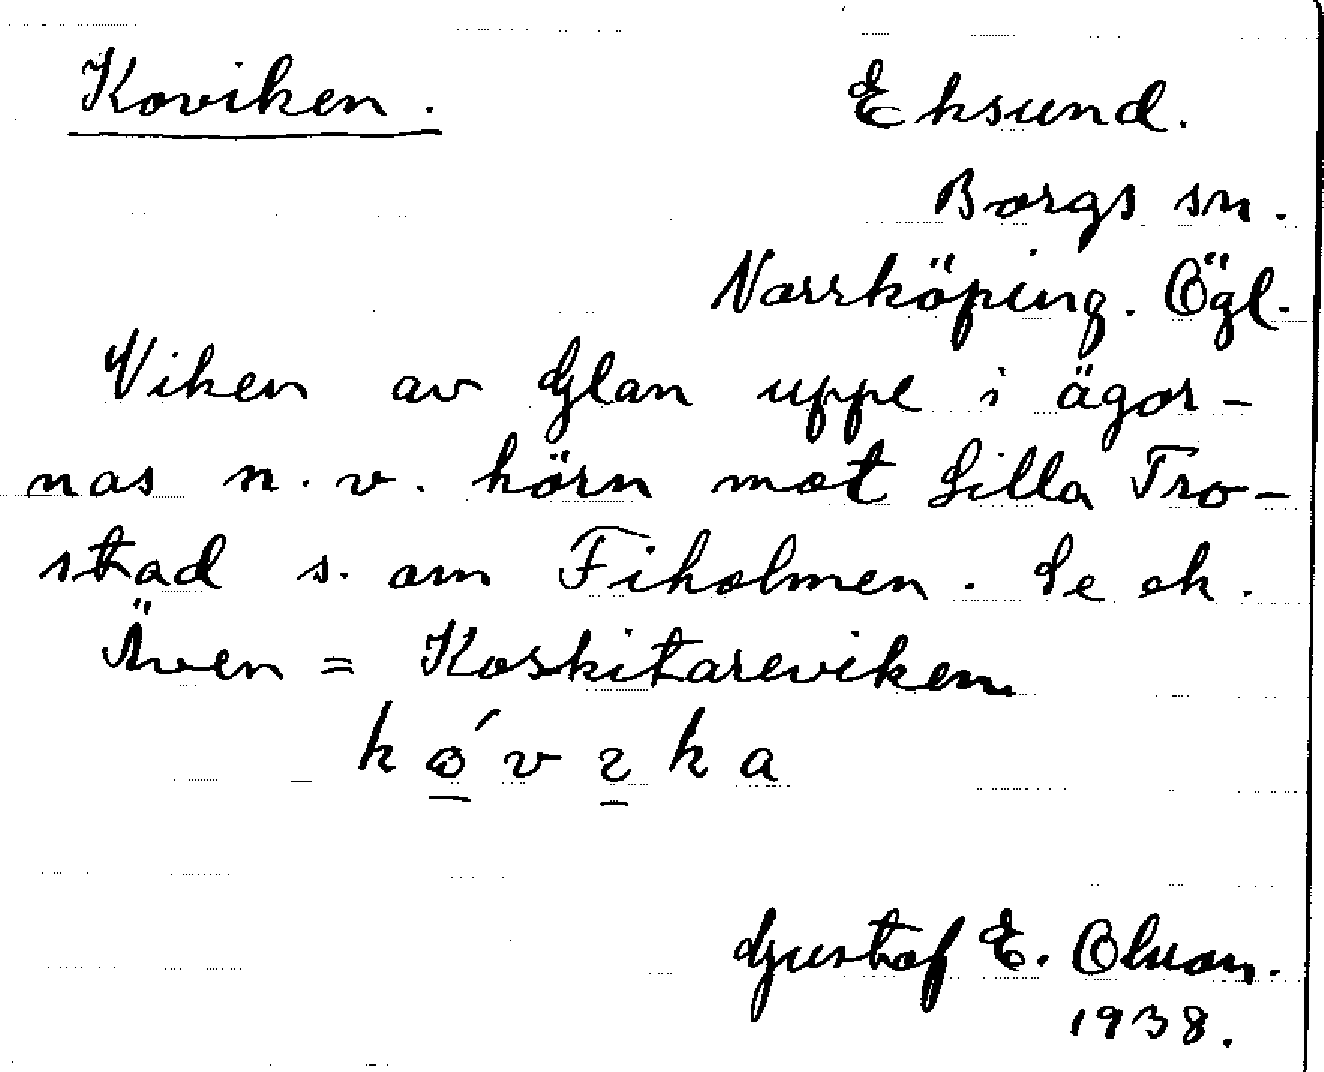 Koviken.
Eksund.
Borgs sn.
Norrköping. Ögl.
Viken av Glan uppe i ägor-
nas n.v. hörn mot Lilla Tro-
stad s. om Fiholmen. Se ek.
Även = Koskitareviken.
Gustaf E. Olsson.
1938.